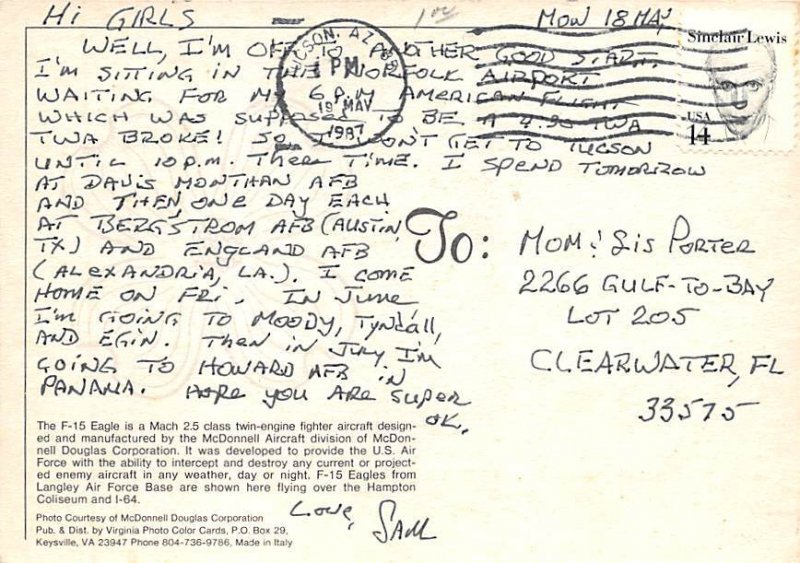 Hi GIRLS
1.00
MON 18 MAY
WELL, I'M OFF TO ANOTHER GOOD START.
I'M SITTING IN THE NORFOLK AIRPORT
WAITING FOR MY 6 P.M AMERICAN FLIGHT
WHICH WAS SUPPOSED TO BE A 4:30 TWA
TWA BROKE! SO I WON'T GET TO TUCSON
UNTIL 10 P.M. THERE TIME. I SPEND TOMORROW
AT DAVIS MONTHAN AFB
AND THEN, ONE DAY EACH
AT BERGSTROM AFB (AUSTIN,
TX) AND ENGLAND AFB
(ALEXANDRIA, LA.). I COME
HOME ON FRI. IN JUNE
I'M GOING TO MOODY, Tyndall,
AND EGIN. Then in July I'M
GOING TO HOWARD AFB IN
PANAMA. HOPE YOU ARE SUPER
OK.
Love, SAM
TUCSON, AZ
PM
19 MAY
1987
Sinclair Lewis
USA
14
To:
MOM & SIS PORTER
2266 GULF-TO-BAY
LOT 205
CLEARWATER, FL
33575
The F-15 Eagle is a Mach 2.5 class twin-engine fighter aircraft design-
ed and manufactured by the McDonnell Aircraft division of McDon-
nell Douglas Corporation. It was developed to provide the U.S. Air
Force with the ability to intercept and destroy any current or project-
ed enemy aircraft in any weather, day or night. F-15 Eagles from
Langley Air Force Base are shown here flying over the Hampton
Coliseum and I-64.
Photo Courtesy of McDonnell Douglas Corporation
Pub. & Dist. by Virginia Photo Color Cards, P.O. Box 29,
Keysville, VA 23947 Phone 804-736-9786, Made in Italy